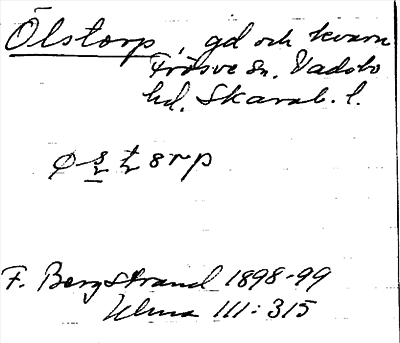 Ölstorp, gd och kvarn
Frösve sn. Vadsbo
hd. Skarab. l.
F. Bergstrand 1898-99
Ulma 111:315